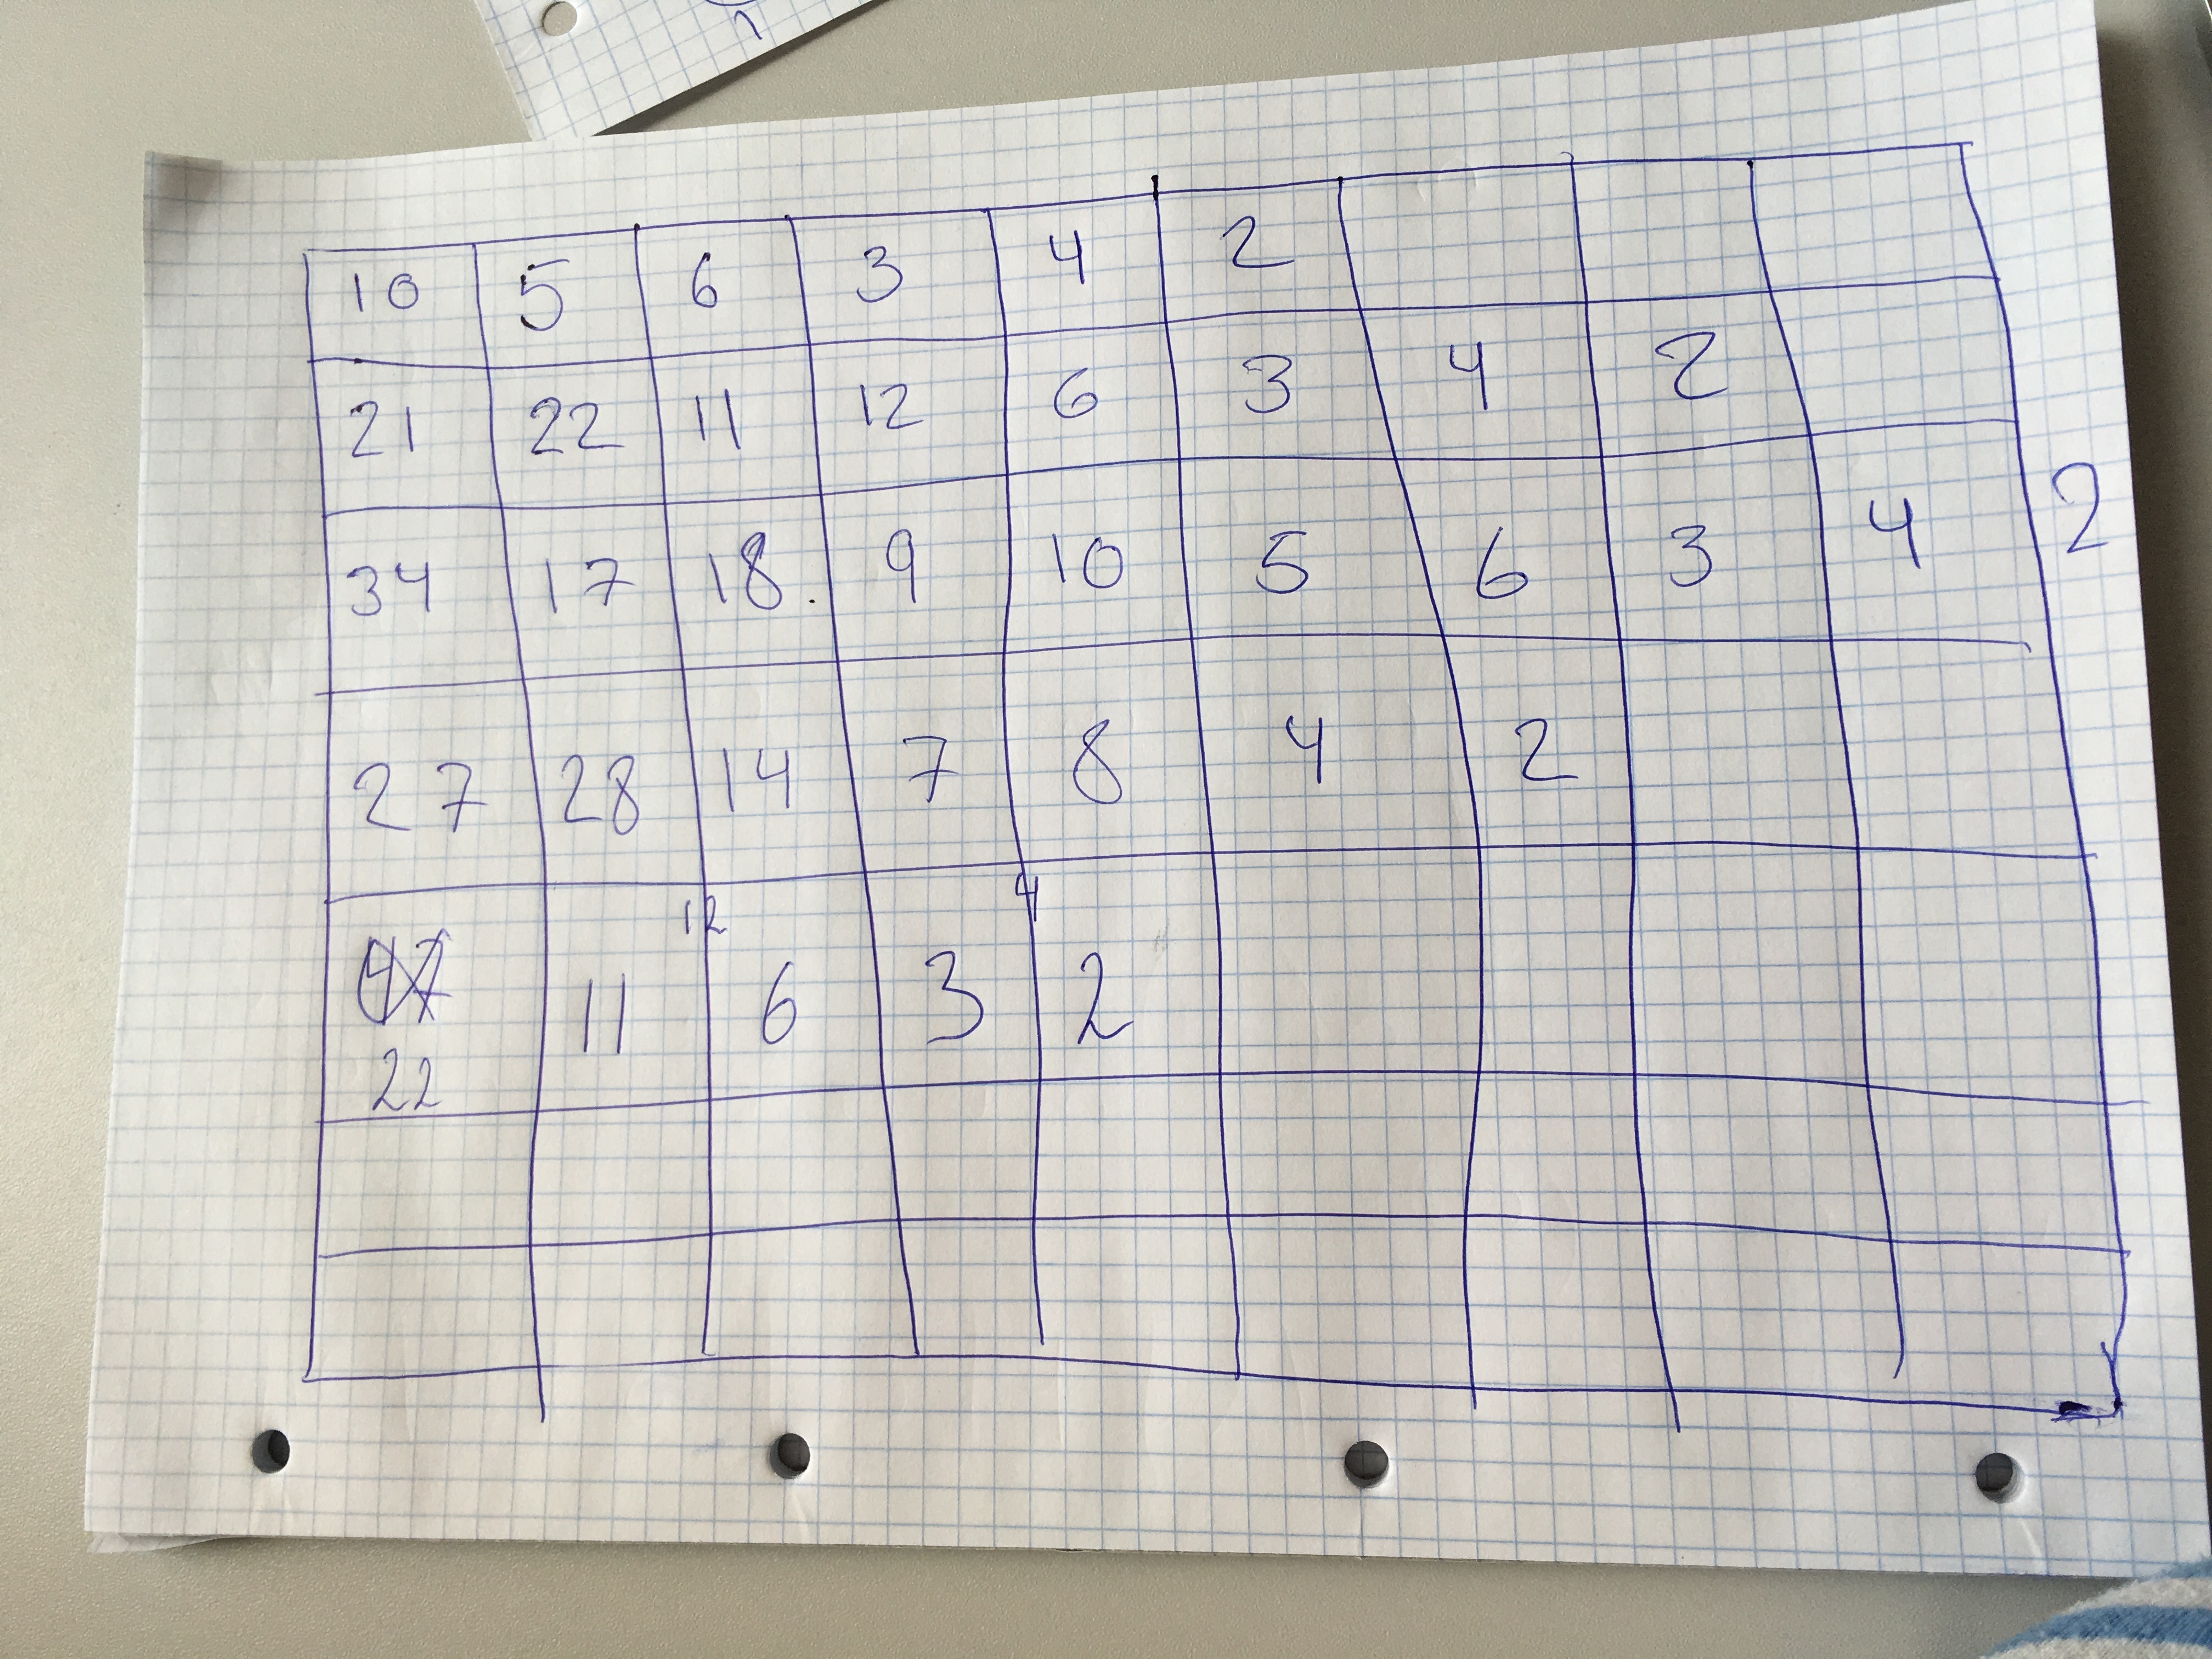 10 5 6 3 4 2
21 22 11 12 6 3 4 2
34 17 18. 9 10 5 6 3 4 2
27 28 14 7 8 4 2
12 4
11 6 3 2
22